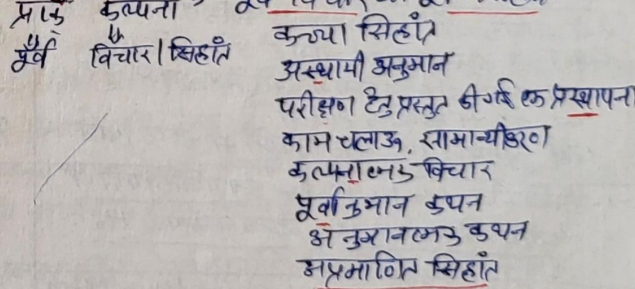 प्राक् कल्पना
पूर्व विचार/सिद्धांत
कच्चा सिद्धांत
अस्थायी अनुमान
परीक्षण हेतु प्रस्तुत की गई एक प्रस्थापना
काम चलाऊ, सामान्यीकरण
कल्पनात्मक विचार
पूर्वानुमान कथन
अनुमानात्मक कथन
अप्रमाणित सिद्धांत